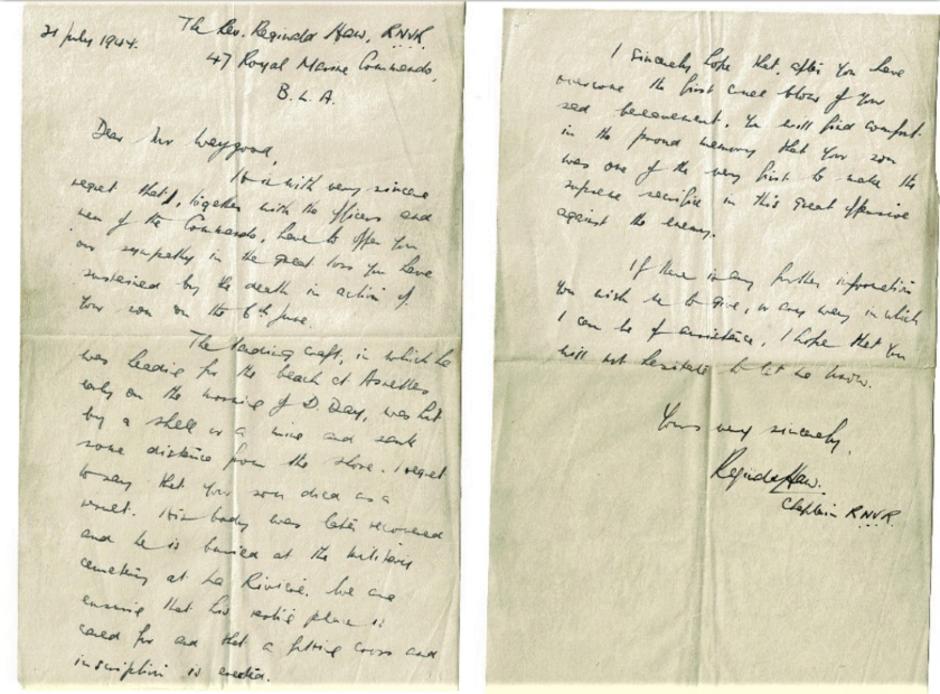 21 July 1944.
The Rev. Reginald Haw, R.N.V.R.
47 Royal Marine Commando,
B. L. A.
Dear Mr Waygood,
It is with very sincere
regret that I, together with the officers and
men of the Commando, have to offer you
our sympathy in the great loss you have
sustained by the death in action of
your son on the 6th June.
The landing craft, in which he
was heading for the beach at Asnelles
early on the morning of D. Day, was hit
by a shell or a mine and sank
some distance from the shore. I regret
to say that your son died as a
result. His body was later recovered
and he is buried at the military
cemetery at La Riviere. We are
ensuring that his resting place is
cared for and that a fitting cross and
inscription is erected.
I sincerely hope that, after you have
overcome the first cruel blow of your
sad bereavement, you will find comfort
in the proud memory that your son
was one of the very first to make the
supreme sacrifice in this great offensive
against the enemy.
If there is any further information
you wish me to give, or any way in which
I can be of assistance, I hope that you
will not hesitate to let me know.
Yours very sincerely,
Reginald Haw.
Chaplain R.N.V.R.